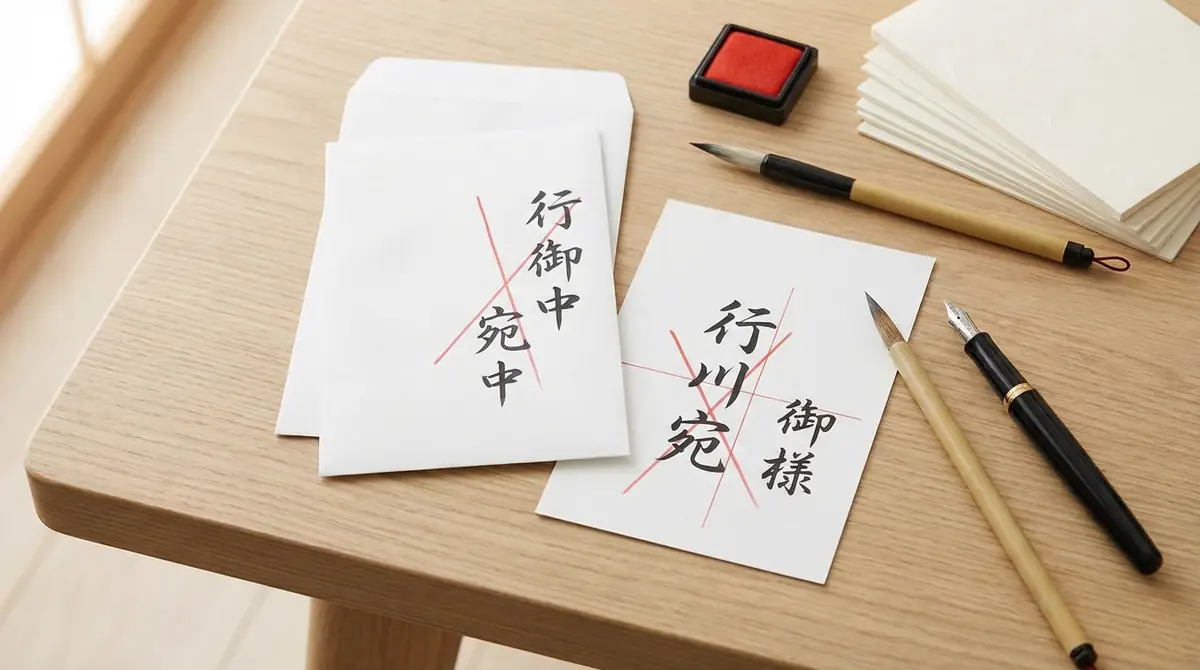 行御中
宛中
御様
行川宛